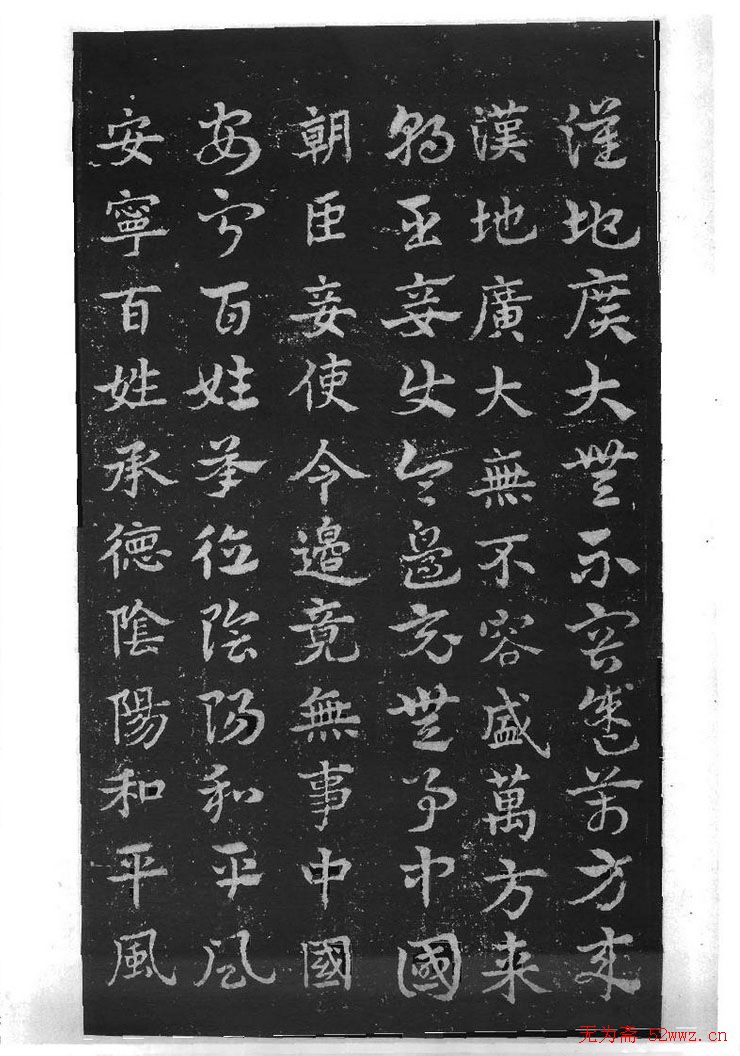 漢地廣大無不容盛萬方来
漢地廣大無不容盛萬方来
朝臣妾使令邊竟無事中國
朝臣妾使令邊竟無事中國
安寧百姓承德陰陽和平風
安寧百姓承德陰陽和平風
无为斋 52wwz.cn